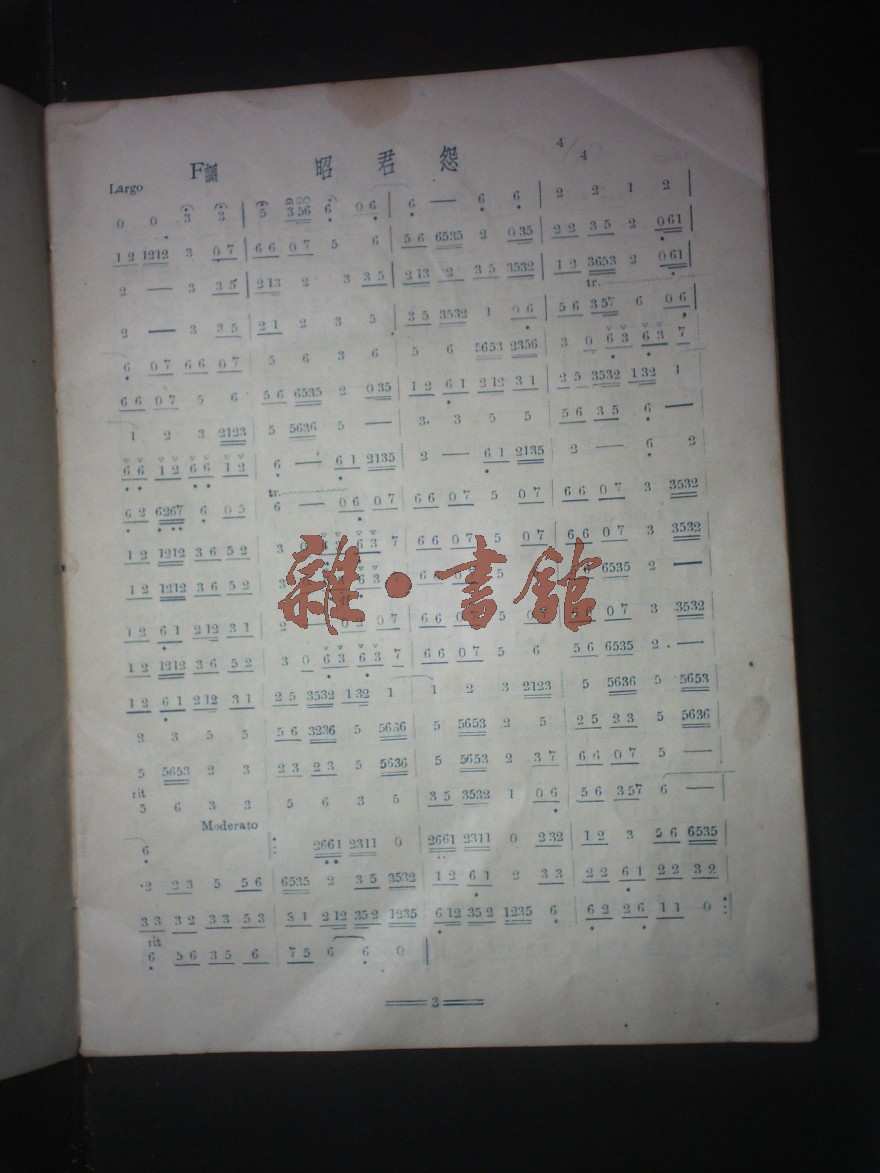 F調 昭君怨 4/4
Largo
0 0 3 3 | 5 356 6 06 | 6 — 6 6 | 2 2 1 2
12 1212 3 07 | 66 07 5 6 | 56 6535 2 035 | 22 35 2 061
2 — 3 35 | 213 2 3 35 | 213 2 35 3532 | 12 3653 2 061
tr.
2 — 3 35 | 21 2 3 5 | 35 3532 1 06 | 56 357 6 06
6 07 66 07 | 5 6 3 6 | 5 6 5653 2356 | 3 0 63 63 7
66 07 5 6 | 56 6535 2 035 | 12 61 212 31 | 25 3532 132 1
1 2 3 2123 | 5 5636 5 — | 3. 3 5 5 | 56 35 6 —
66 12 66 12 | 6 — 61 2135 | 2 — 61 2135 | 2 — 6 2
tr.
62 6267 6 05 | 6 — 06 07 | 66 07 5 07 | 66 07 3 3532
12 1212 36 52 | 3 7 | 66 07 5 07 | 66 07 3 3532
12 1212 36 52 | 6535 2 —
雜·書館
12 61 212 31 | 2 07 | 66 07 5 | 07 3 3532
12 1212 36 52 | 3 0 63 63 7 | 66 07 5 6 | 56 6535 2 —
12 61 212 31 | 25 3532 132 1 | 1 2 3 2123 | 5 5636 5 5653
3 3 5 5 | 56 3236 5 5636 | 5 5653 2 5 | 25 23 5 5636
5 5653 2 3 | 23 23 5 5636 | 5 5653 2 37 | 66 07 5 —
rit
5 6 3 3 | 5 6 3 5 | 35 3532 1 06 | 56 357 6 —
Moderato
6 : 2661 2311 0 | 2661 2311 0 232 | 12 3 56 6535
2 23 5 56 | 6535 2 35 3532 | 12 61 2 33 | 22 61 22 32
33 32 33 53 | 31 212 352 1235 | 612 352 1235 6 | 62 26 11 0 :
rit
6 56 35 6 | 75 6 6 0
3